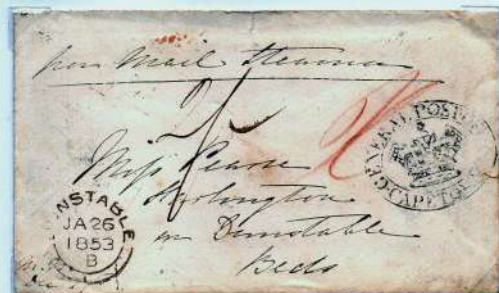 per Mail Steamer
Miss Pearse
Harlington
nr Dunstable
Beds
GENERAL POST OFFICE
CAPE TOWN
DUNSTABLE
JA 26
1853
B